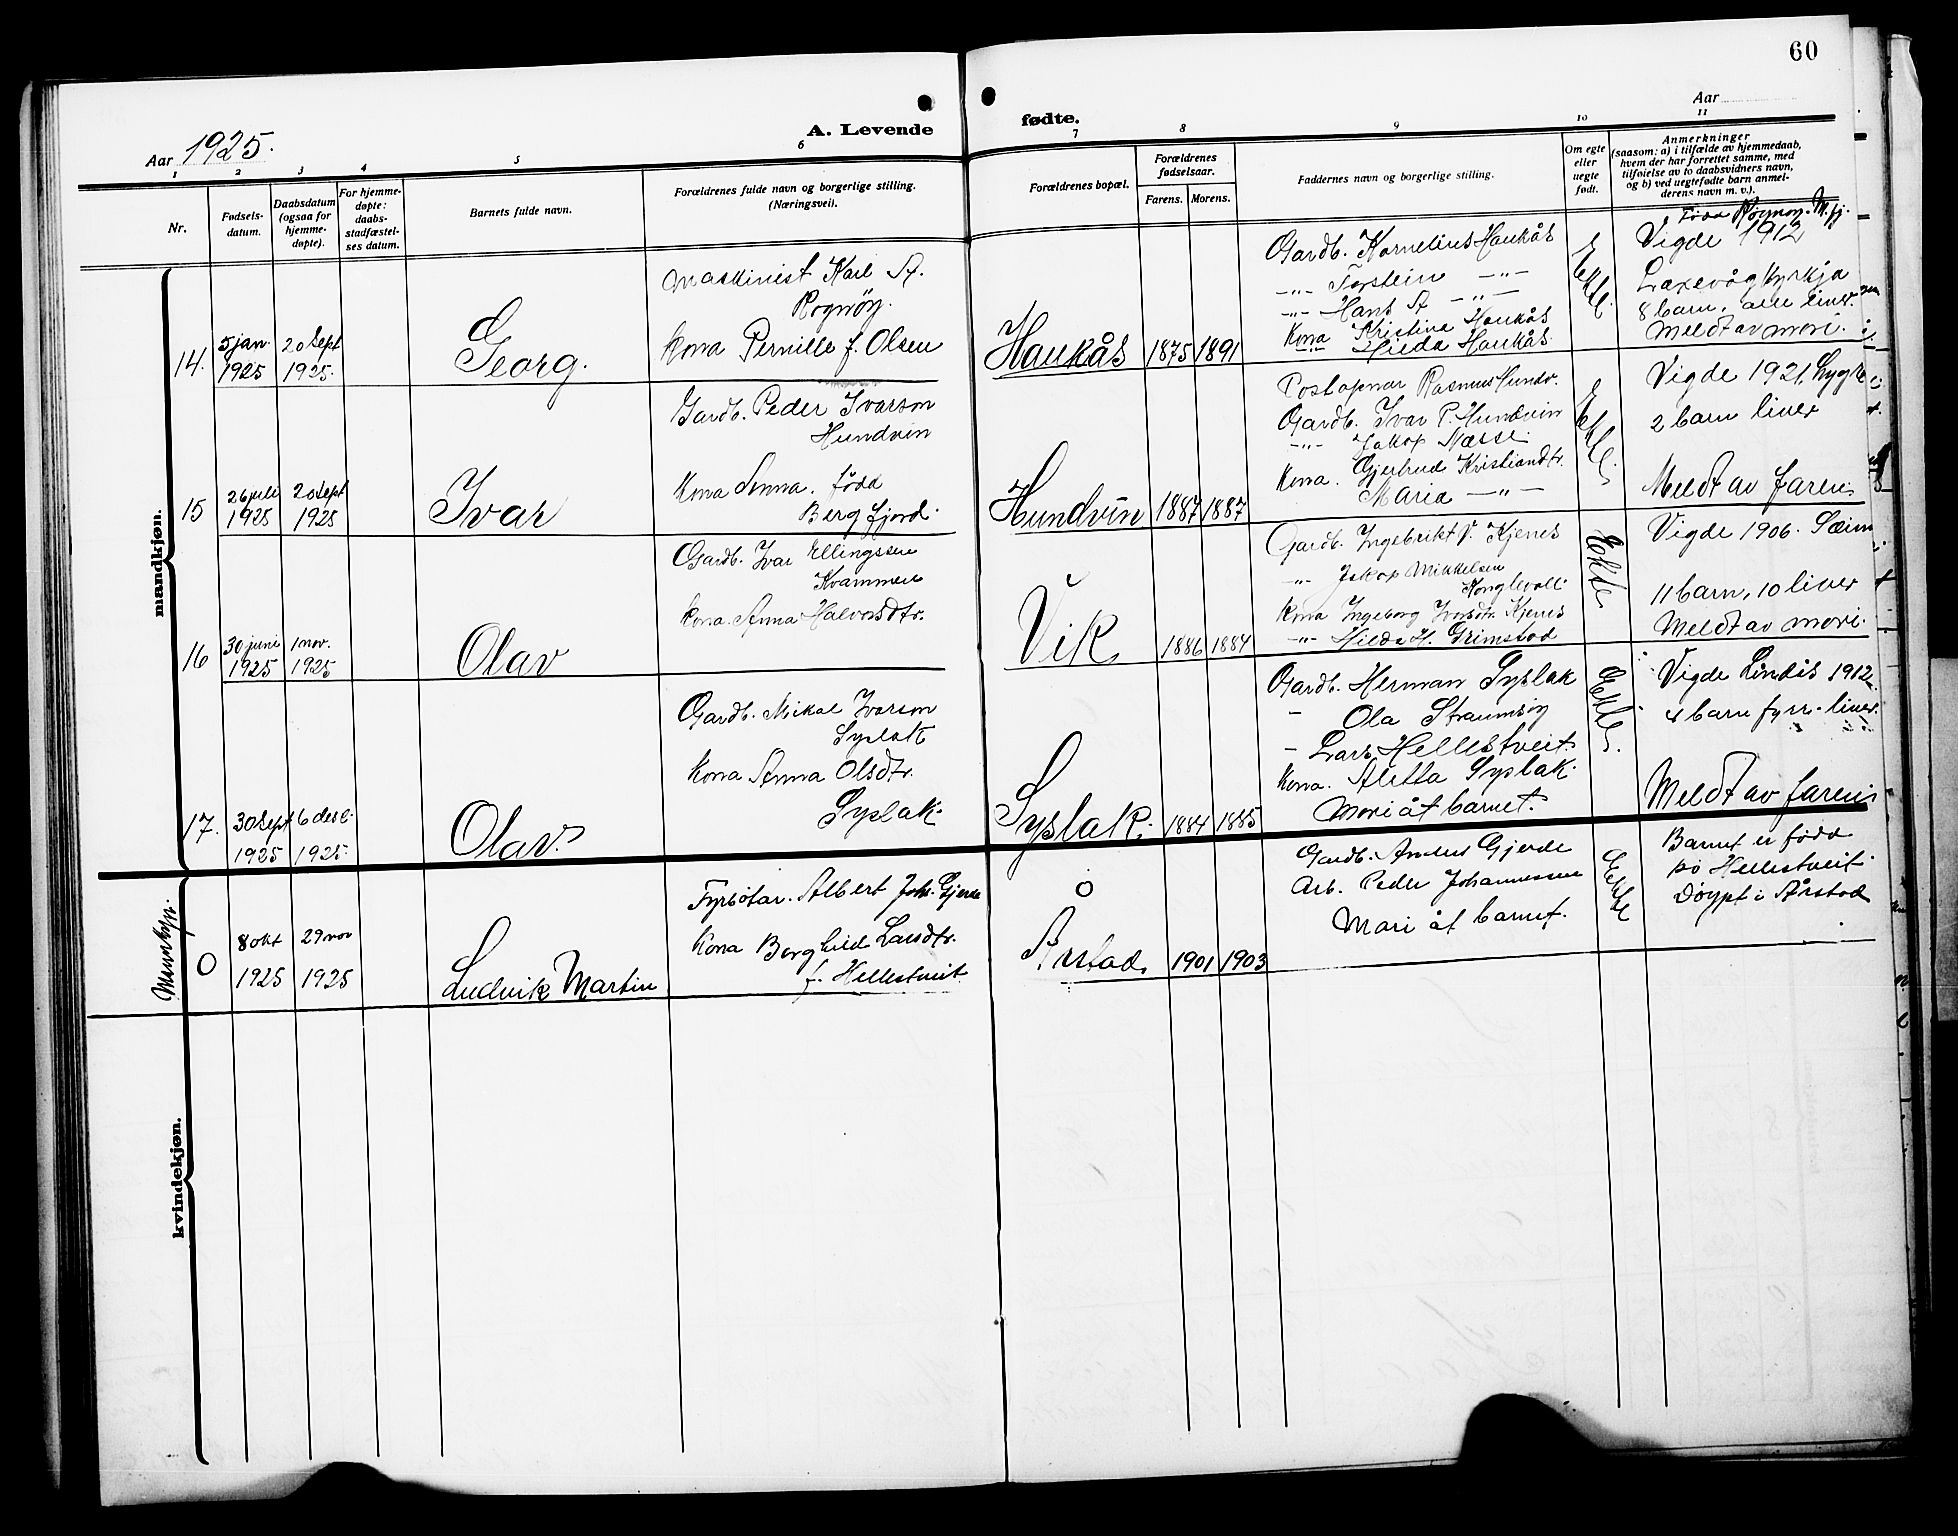 60
Aar 1925.
A. Levende
fødte.
Aar
1 2 3 4 5 6 7 8 9 10 11
Nr.
Fødsels-
datum.
Daabsdatum
(ogsaa for
hjemme-
døpte).
For hjemme-
døpte:
daabs-
stadfæstel-
ses datum.
Barnets fulde navn.
Forældrenes fulde navn og borgerlige stilling.
(Næringsvei).
Forældrenes bopæl.
Forældrenes
fødselsaar.
Farens. Morens.
Faddernes navn og borgerlige stilling.
Om egte
eller
uegte
født.
Anmerkninger
(saasom: a) i tilfælde av hjemmedaab,
hvem der har forrettet samme, med
tilføielse av to daabsvidners navn,
og b) ved uegtefødte barn anmel-
derens navn m. v.).
mandkjøn.
14.
5 jan.
1925
20 Sept
1925.
Georg.
Maskinist Karl A.
Rognøy.
Kona Pernille f. Olsen
Haukås
1875
1891
Gardb. Kornelius Haukås
-"- Torstein -"-
-"- Hans A -"-
Kona Kristine Haukås
-"- Hilda Haukås.
Ekte.
Født Rognøy. M.fj.
Vigde 1912
Laxevåg kyrkja
8 barn, alle liver.
Meldt av mori.
15
26 juli
1925
20 Sept
1925
Ivar
Gardb. Peder Ivarson
Hundvin
Kona Anna. född
Bergfjord.
Hundvin
1887
1887
Postopnar Rasmus Hundv.
Gardb. Ivar P. Hundvin
-"- Jakop Næsse
Kona. Gjertrud Kristiandtr.
Maria -"-
Ekte.
Vigde 1921. Lygre
2 barn liver
Meldt av faren
16
30 juni
1925
1 nov.
1925
Olav
Gardb. Ivar Ellingssen
Kvammen
Kona. Anna Halvorsdtr.
Vik
1886
1884
Gardb. Ingebrikt V. Kjenes
-"- Jakop Mikkelsen
Konglevoll
Kona Ingeborg Ivarsdtr. Kjenes
-"- Hilda H. Grimstad
Ekte
Vigde 1906. Sæim
11 barn, 10 liver
Meldt av mori.
17.
30 Sept
1925
6 des.
1925.
Olav.
Gardb. Mikal Ivarson
Syslak
Kona Anna Olsdtr.
Syslak.
Syslak.
1884
1885
Gardb. Herman Syslak
- Ola Straumsøy
- Lars Hellestveit.
Kona. Aletta Syslak.
Mori åt barnet.
Ekte.
Vigde Lindås 1912.
4 barn fyrr. liver.
Meldt av faren
Mannkjn.
0
8 okt
1925
29 nov
1925
Ludvik Martin
Fyrbøtar. Albert Joh. Gjerde
Kona Borghild Larsdtr.
f. Hellestveit.
O
Årstad.
1901
1903
Gardb. Anders Gjerde
Arb. Peder Johannessen
Mori åt barnet.
Ekte
Barnet er född
på Hellestveit.
Døypt i Årstad
kvindekjøn.